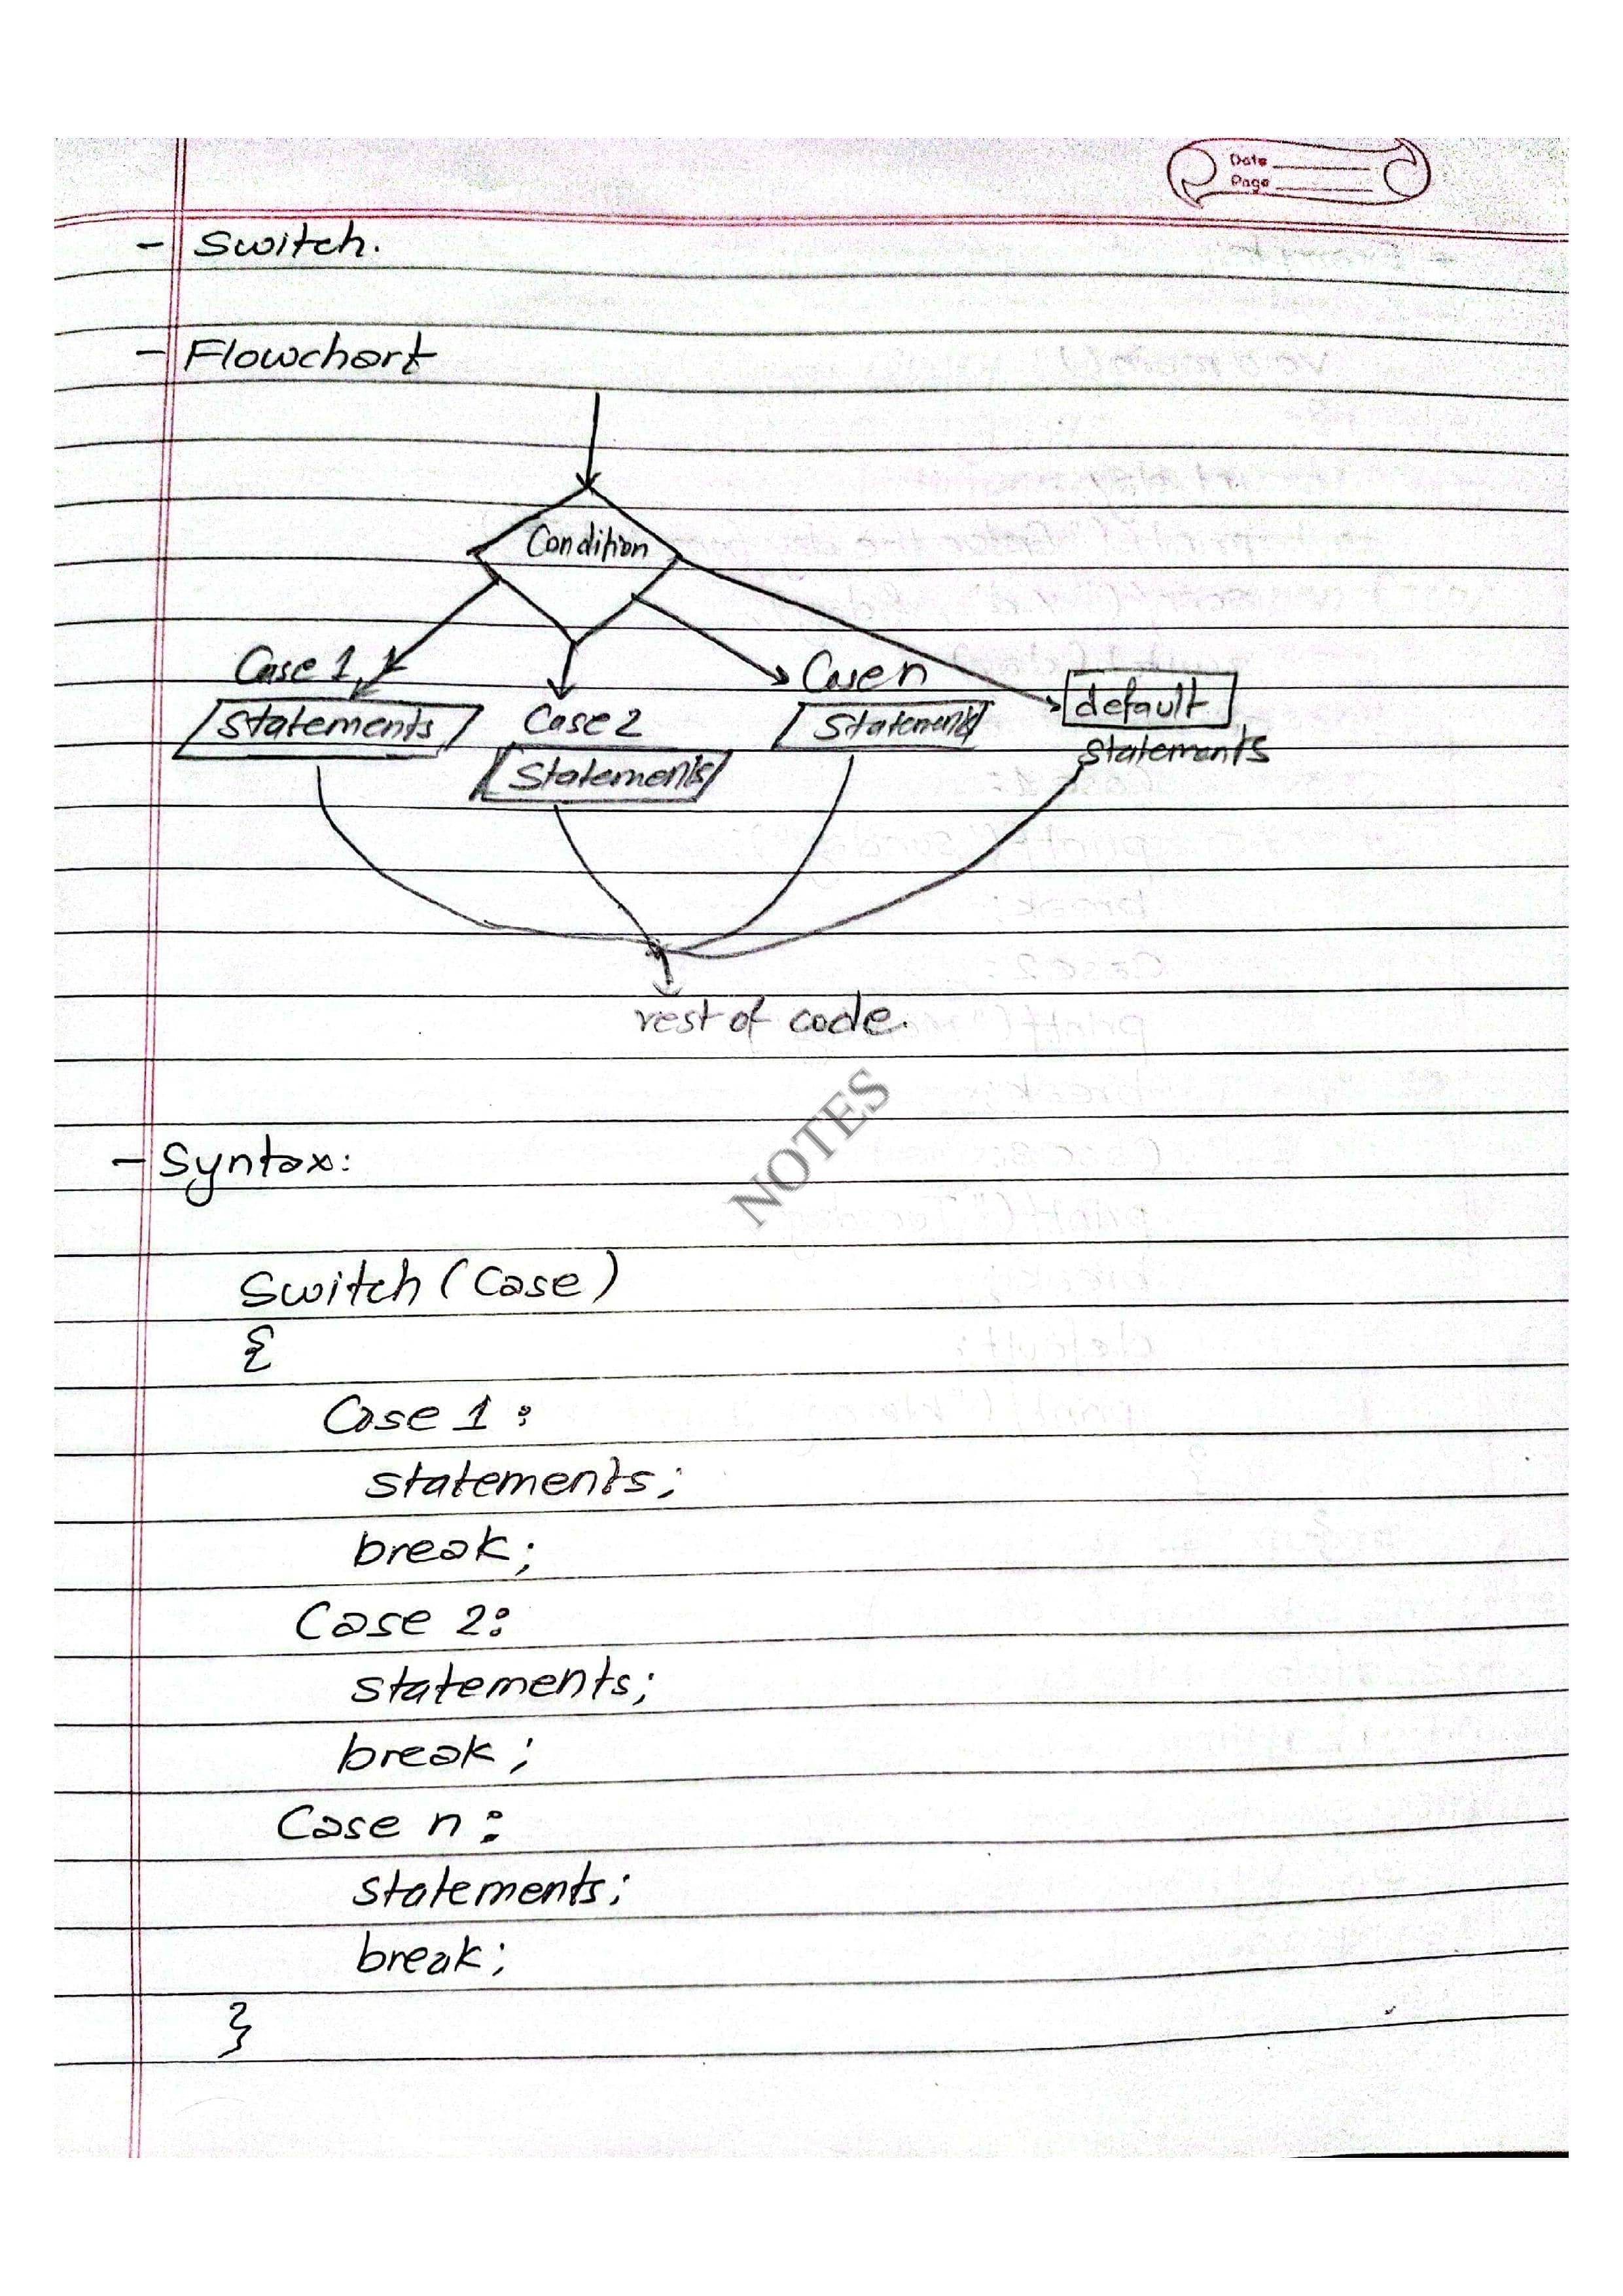 Date
Page
- Switch.
- Flowchart
Condition
Case 1
Statements
Case 2
Statements
Case n
Statements
default
statements
rest of code.
NOTES
- Syntax:
Switch (Case)
{
Case 1 :
statements;
break;
Case 2:
statements;
break;
Case n :
statements;
break;
}